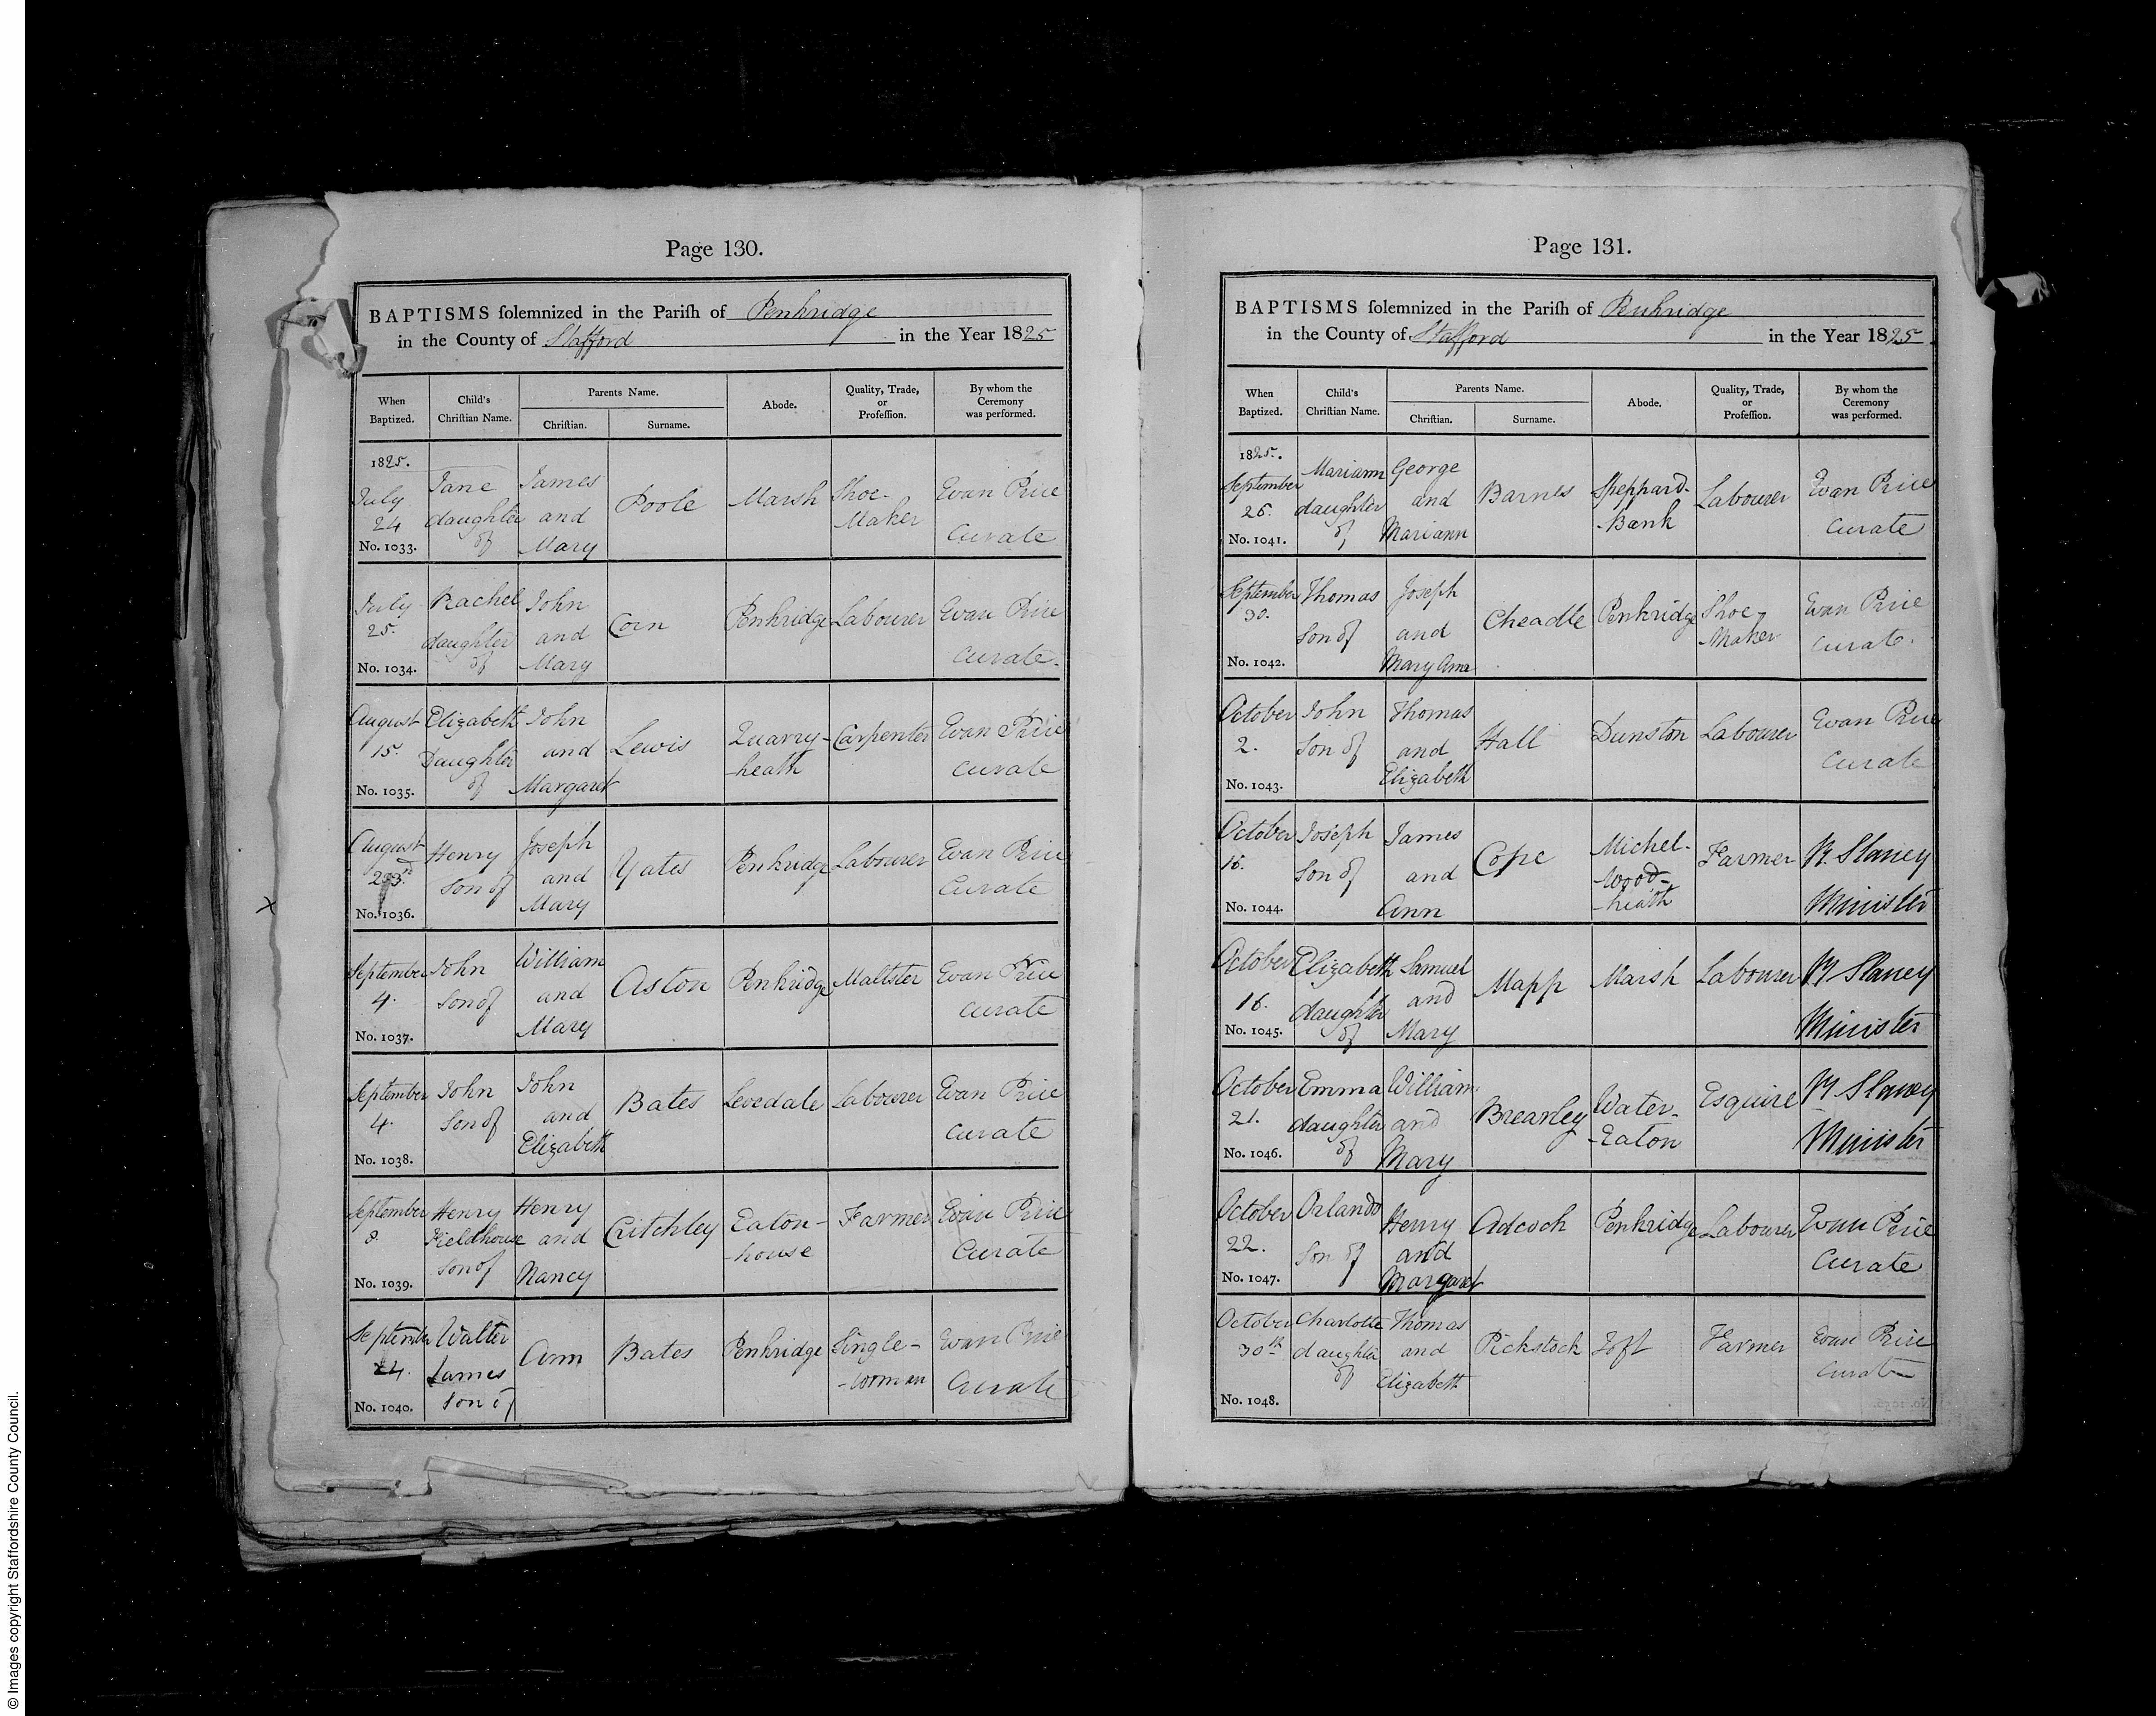 Page 130.
BAPTISMS solemnized in the Parish of Penkridge
in the County of Stafford in the Year 1825
When Baptized. Child's Christian Name. Parents Name. Christian. Surname. Abode. Quality, Trade, or Profession. By whom the Ceremony was performed.
1825. July 24 No. 1033. Jane daughter of James and Mary Poole Marsh Shoe-Maker Evan Price Curate
July 25. No. 1034. Rachel daughter of John and Mary Corn Penkridge Labourer Evan Price Curate.
August 15. No. 1035. Elizabeth Daughter of John and Margaret Lewis Quarry-heath Carpenter Evan Price Curate
August 23rd No. 1036. Henry Son of Joseph and Mary Yates Penkridge Labourer Evan Price Curate
September 4. No. 1037. John Son of William and Mary Aston Penkridge Maltster Evan Price Curate
September 4. No. 1038. John Son of John and Elizabeth Bates Levedale Labourer Evan Price Curate
September 8. No. 1039. Henry Fieldhouse Son of Henry and Nancy Critchley Eaton-house Farmer Evan Price Curate
September 24. No. 1040. Walter James Son of Ann Bates Penkridge Single-woman Evan Price Curate
Page 131.
BAPTISMS solemnized in the Parish of Penkridge
in the County of Stafford in the Year 1825
When Baptized. Child's Christian Name. Parents Name. Christian. Surname. Abode. Quality, Trade, or Profession. By whom the Ceremony was performed.
1825. September No. 1041. Mariann daughter of George and Mariann Barnes Sheppard-Bank Labourer Evan Price Curate
September 30. No. 1042. Thomas Son of Joseph and Mary Ann Cheadle Penkridge Shoe-Maker Evan Price Curate.
October 2. No. 1043. John Son of Thomas and Elizabeth Hall Dunston Labourer Evan Price Curate
October 16. No. 1044. Joseph Son of James and Ann Cope Michel-wood-heath Farmer R. Slaney Minister
October 16. No. 1045. Elizabeth daughter of Samuel and Mary Mapp Marsh Labourer R Slaney Minister
October 21. No. 1046. Emma daughter of William and Mary Brearley Water-Eaton Esquire R Slaney Minister
October 22. No. 1047. Orlando Son of Henry and Margaret Adcock Penkridge Labourer Evan Price Curate
October 30th No. 1048. Charlotte daughter of Thomas and Elizabeth Pickstock Toft Farmer Evan Price Curate
© Images copyright Staffordshire County Council.